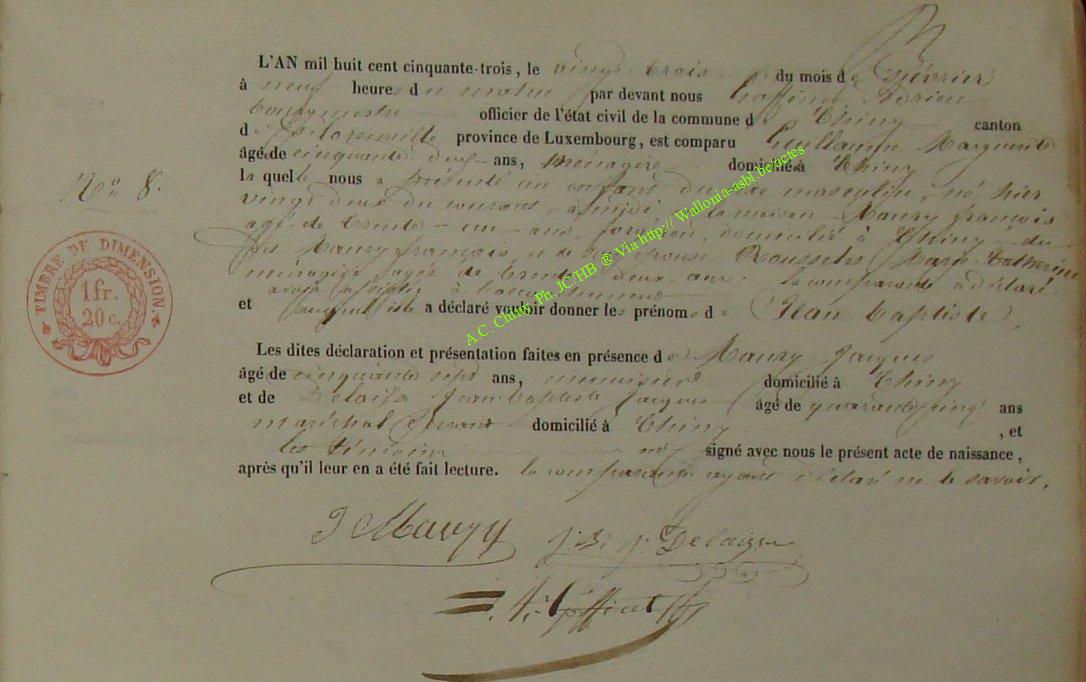 L'AN mil huit cent cinquante-trois, le vingt trois du mois de février
à neuf heures du matin par devant nous Adrien
bourgmestre officier de l'état civil de la commune de Chiny canton
de province de Luxembourg, est comparu Guillaume Marguerite
âgée de cinquante deux ans, ménagère domicilié à Chiny
la quelle nous a présenté un enfant du sexe masculin, né hier
vingt deux du courant, à midi la maison Maury françois
agé de trente un ans, domicilié à Chiny
fils Maury françois, et de son épouse Marie Catherine
ménagère agée de trente deux ans la comparante a déclaré
avoir assistée à l'accouchement
et auquel elle a déclaré vouloir donner les prénoms de Jean baptiste,
Les dites déclaration et présentation faites en présence de Maury Jacques
âgé de cinquante sept ans, menuisier domicilié à Chiny
et de Jean baptiste Jacques âgé de quarante cinq ans
maréchal ferrant domicilié à Chiny , et
les témoins ont signé avec nous le présent acte de naissance,
après qu'il leur en a été fait lecture. la comparante ayant déclaré ne le savoir.
No. 8.
TIMBRE DE DIMENSION
1 fr.
20 c.
J Maury J: B: J: Delaize
A.C. Chiny Ph. JC/HB ® Via http://Wallonia-asbl.be/actes